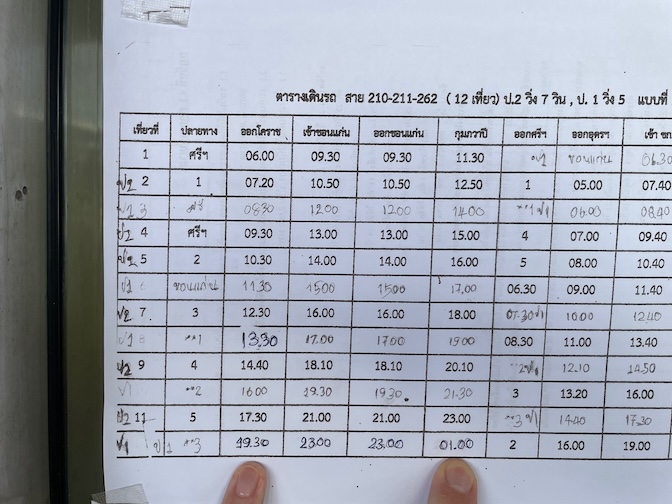 ตารางเดินรถ สาย 210-211-262 ( 12 เที่ยว) ป.2 วิ่ง 7 วัน , ป. 1 วิ่ง 5 แบบที่
เที่ยวที่ ปลายทาง ออกโคราช เข้าขอนแก่น ออกขอนแก่น กุมภวาปี ออกศรีฯ ออกอุดรฯ เข้า ขก
1 ศรีฯ 06.00 09.30 09.30 11.30 ป1 ขอนแก่น 06.30
ป2 2 1 07.20 10.50 10.50 12.50 1 05.00 07.40
ป1 3 ศรี 08.30 12.00 12.00 14.00 **1 ป1 06.00 08.40
ป2 4 ศรีฯ 09.30 13.00 13.00 15.00 4 07.00 09.40
ป2 5 2 10.30 14.00 14.00 16.00 5 08.00 10.40
ป1 6 ขอนแก่น 11.30 15.00 15.00 17.00 06.30 09.00 11.40
ป2 7 3 12.30 16.00 16.00 18.00 07.30 ป1 10.00 12.40
ป1 8 **1 13.30 17.00 17.00 19.00 08.30 11.00 13.40
ป2 9 4 14.40 18.10 18.10 20.10 **2 ป1 12.10 14.50
ป1 **2 16.00 19.30 19.30 21.30 3 13.20 16.00
ป2 11 5 17.30 21.00 21.00 23.00 **3 ป1 14.40 17.30
ป1 ป1 **3 19.30 23.00 23.00 01.00 2 16.00 19.00